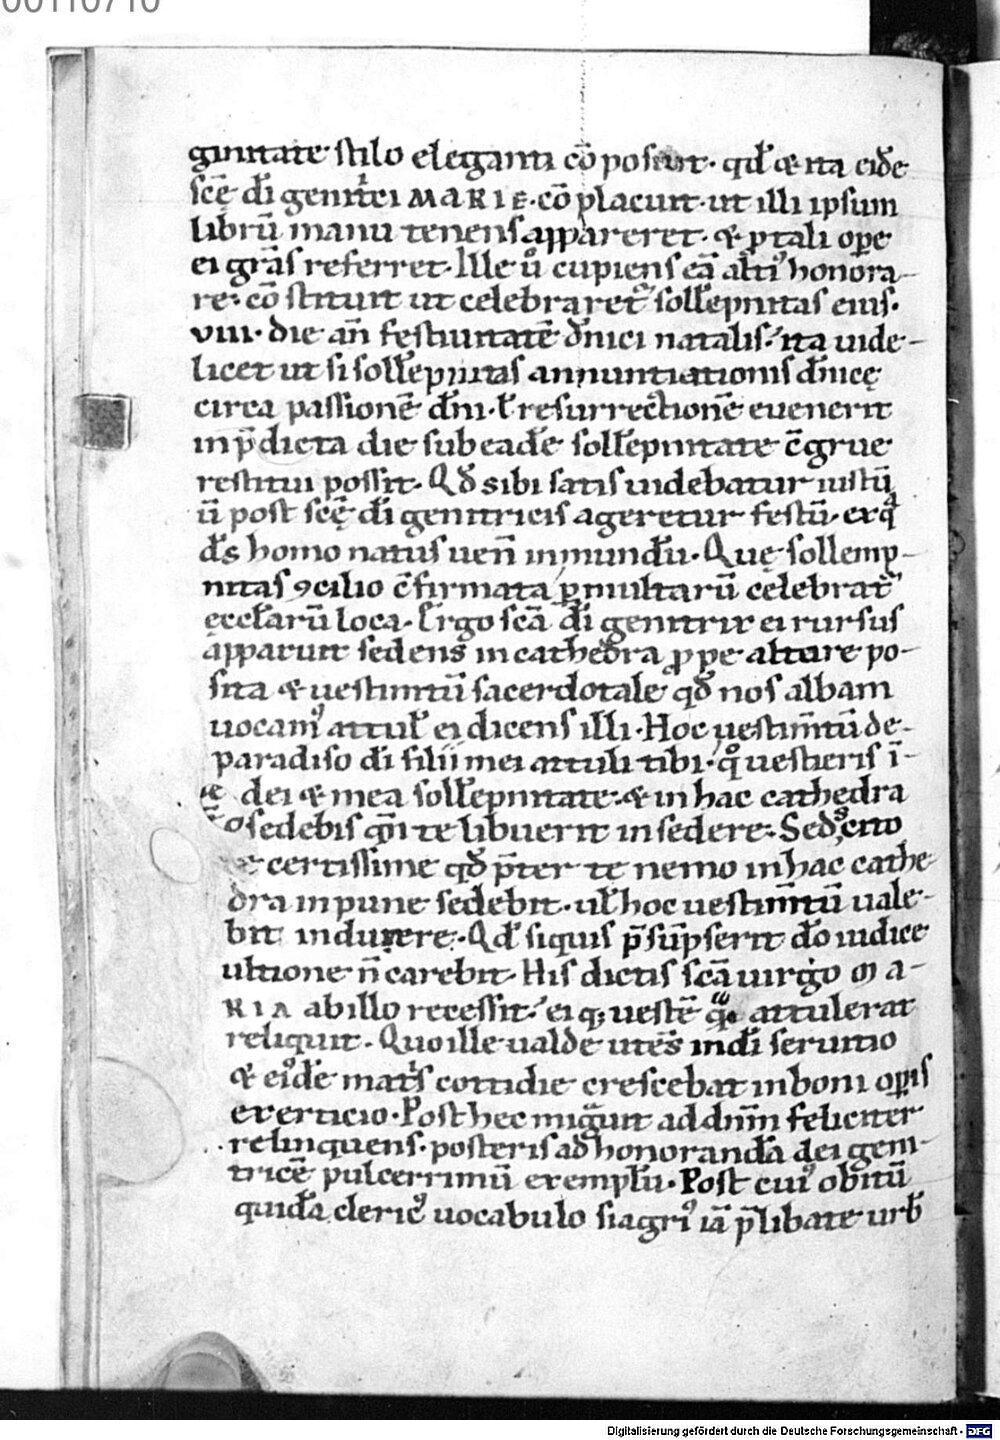 00110710
ginitate stilo eleganti cōposuit· qd̄ & ita eidē
scę̄ dī genitⁱci MARIE·cōplacuit·ut illi ipsum
librū manu tenens appareret·& p tali ope
ei grās referret·Ille u̾ cupiens eā altiꝰ honora-
re·cōstituit ut celebraret᷑ sollēpnitas eius·
VIII·die añ festiuitatē dñici natalis·ita uide-
licet ut si sollēpnitas annuntiationis dñicę
circa passionē dñi·ł resurrectionē euenerit
in p̄dicta die sub eadē sollēpnitate c̄grue
restitui possit· Qd̄ sibi satis uidebatur iustū
ū post scę̄ dī genitricis ageretur festū·ex q̊
d̄s homo natus uen̄ in mundū·Quę sollemp-
nitas ꝯcilio c̄firmata p multarū celebrat᷑
ęccłarū loca·Ergo scā dī genitrix ei rursus
apparuit sedens in cathedra ꝓpe altare po-
sita & uestimtū sacerdotale qd̄ nos albam
uocamꝰ attuł ei dicens illi·Hoc uestim̄tū de-
paradiso dī filii mei attuli tibi·q̊ uestieris ī-
dei & mea sollēpnitate·& in hac cathedra
sedebis qn̄ te libuerit in sedere·Sed scito
certissime qd̄ p̄ter te nemo in hac cathe-
dra inpune sedebit·uł hoc uestim̄tū uale-
bit induere·Qd̄ siquis p̄sūpserit dō iudice
ultione n̄ carebit·His dictis scā uirgo MA-
RIA ab illo recessit·ei q; uestē quā attulerat
reliquit·Quo ille ualde utēs in dī seruitio
& eiꝰdē matⁱs cottidie crescebat in boni opis
exercicio·Post hec migᵃuit ad dnm̄ feliciter
relinquens·posteris ad honorandā dei geni-
tricē pulcerrimū exemplū·Post cuiꝰ obitū
quidā clericꝰ uocabulo siagriꝰ iā p̄libatę urb̄
Digitalisierung gefördert durch die Deutsche Forschungsgemeinschaft - DFG